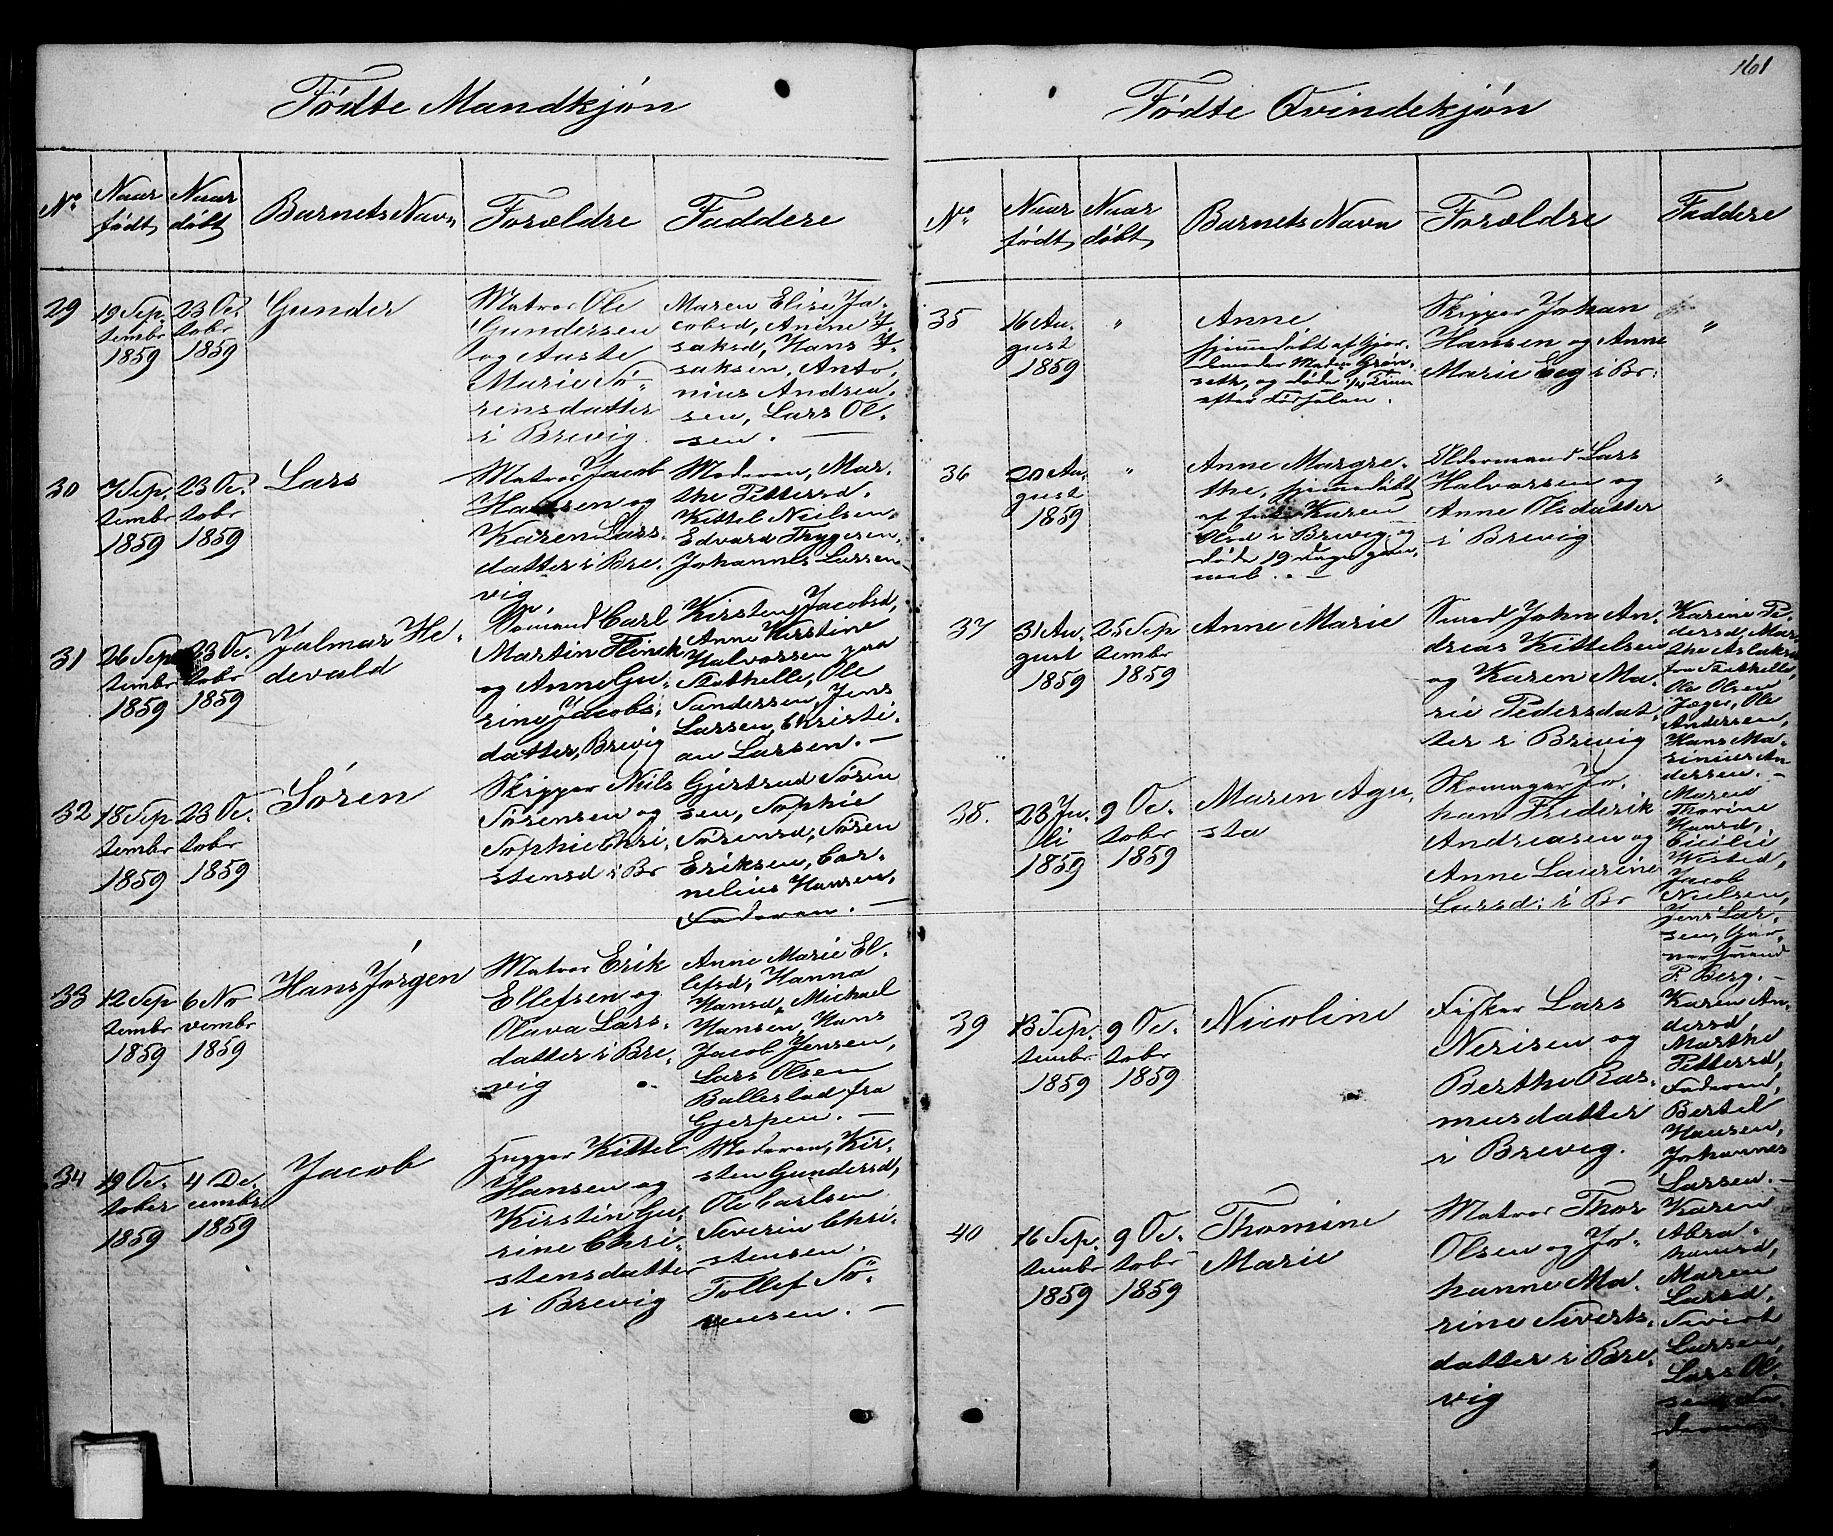 Fødte Mandkjøn
No
Naar født
Naar døbt
Barnets Navn
Forældre
Faddere
29
19 Sep-
tembr
1859
23 Oc-
tobr
1859
Gunder
Matros Ole
Gundersen
og Aaste
Marie Sö-
rensdatter
i Brevig
Maren Elise Ja-
cobsd, Anne I-
saksd, Hans I-
saksen, Anto-
nius Andrea-
sen, Lars Ol-
sen.
30
7 Sep-
tembr
1859
23 Oc-
tobr
1859
Lars
Matros Jacob
Hansen og
Karen Lars-
datter i Bre-
vig
Moderen, Mar-
the Pettersd.
Kittel Nielsen
Edvard Trygesen
Johannes Larsen
31
26 Sep
tembr
1859
23 Oc-
tobr
1859
Hjalmar He-
devald
Carl
Martin Flink
og Anne Gu-
rine Jacobs-
datter, Brevig
Kirsten Jacobsd,
Anne Kirstine
Halvorsen paa
Stathelle, Ole
Sandersen, Jens
Larsen, Christi-
an Larsen.
32
18 Sep
tembr
1859
23 Oc-
tobr
1859
Søren
Skipper Niels
Sörensen og
Sophie Chri-
stensd i Br
Gjertrud Sören
sen, Sophie
Sörensd, Sören
Eriksen, Cor-
nelius Hansen,
Faderen.
33
12 Sep
tembr
1859
6 No
vembr
1859
Hans Jørgen
Matros Erik
Ellefsen og
Olava Lars-
datter i Bre-
vig
Anne Marie El-
lefsd, Hanna
Hansd, Michael
Hansen, Hans
Jacob Jensen,
Lars Olsen
Ballestad fra
Gjerpen.
34
19 Oc-
tober
1859
4 De-
cembr
1859
Jacob
Kittel
Hansen og
Kirstin Gu-
rine Chri-
stensdatter
i Brevig
Moderen, Kir-
sten Gundersd,
Ole Carlsen
Severin Chri-
stensen.
Tollef Sö-
rensen.
161
Fødte Qvindekjøn
No
Naar født
Naar døbt
Barnets Navn
Forældre
Faddere
35
16 Au-
gust
1859
"
Anne
hjemmedöbt af Gjor-
demoder Madm Grøn-
seth, og døde 1/4 Time
efter Födselen.
Skipper Johan
Hansen og Anne
Marie Eeg i Br:
"
36
20 Au-
gust
1859
"
Anne Margre-
the, hjemmedöbt
af Karen
Olsd i Brevig og
døde 19 dage gam-
mel.
Oldermand Lars
Halvorsen og
Anne Olsdatter
i Brevig
"
37
31 Au-
gust
1859
25 Sep
tembr
1859
Anne Marie
Smed John An-
dreas Kittelsen
og Karen Ma-
rie Pedersdat-
ter i Brevig
Karine Pe-
dersd, Mar-
the Aslaksd
fra Stathelle,
Ole Olsen
Jæger, Ole
Andersen,
Hans Ma-
rinius An-
dersen.
38.
23 Ju-
li
1859
9 Oc-
tobr
1859
Maren Agu-
sta
Skomager Jo-
han Frederik
Andreasen og
Anne Laurine
Larsd: i Br
Maren
Thorine
Hansd,
Cicilie
Wisted,
Jacob
Nielsen,
Jens Lar-
sen, Gar-
versvend
P. Berg.
39
13 Sep-
tembr
1859
9 Oc-
tobr
1859
Nicoline
Fisker Lars
Nerisen og
Berthe Ras-
musdatter
i Brevig.
Karen An-
dersd,
Marthe
Pettersd,
Faderen,
Bertel
Hansen,
Johannes
Larsen.
40
16 Sep-
tembr
1859
9 Oc-
tobr
1859
Thomine
Marie
Matros Thor
Olsen og Jo-
hanne Ma-
rine Siverts-
datter i Bre-
vig
Karen
Abra-
hamsd,
Maren
Larsd.
Sivert
Larsen,
Lars Ol-
sen, Fa-
deren